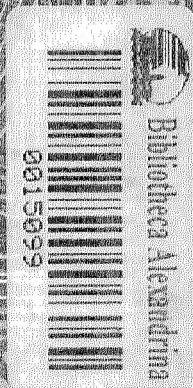 Bibliotheca Alexandrina
0015099